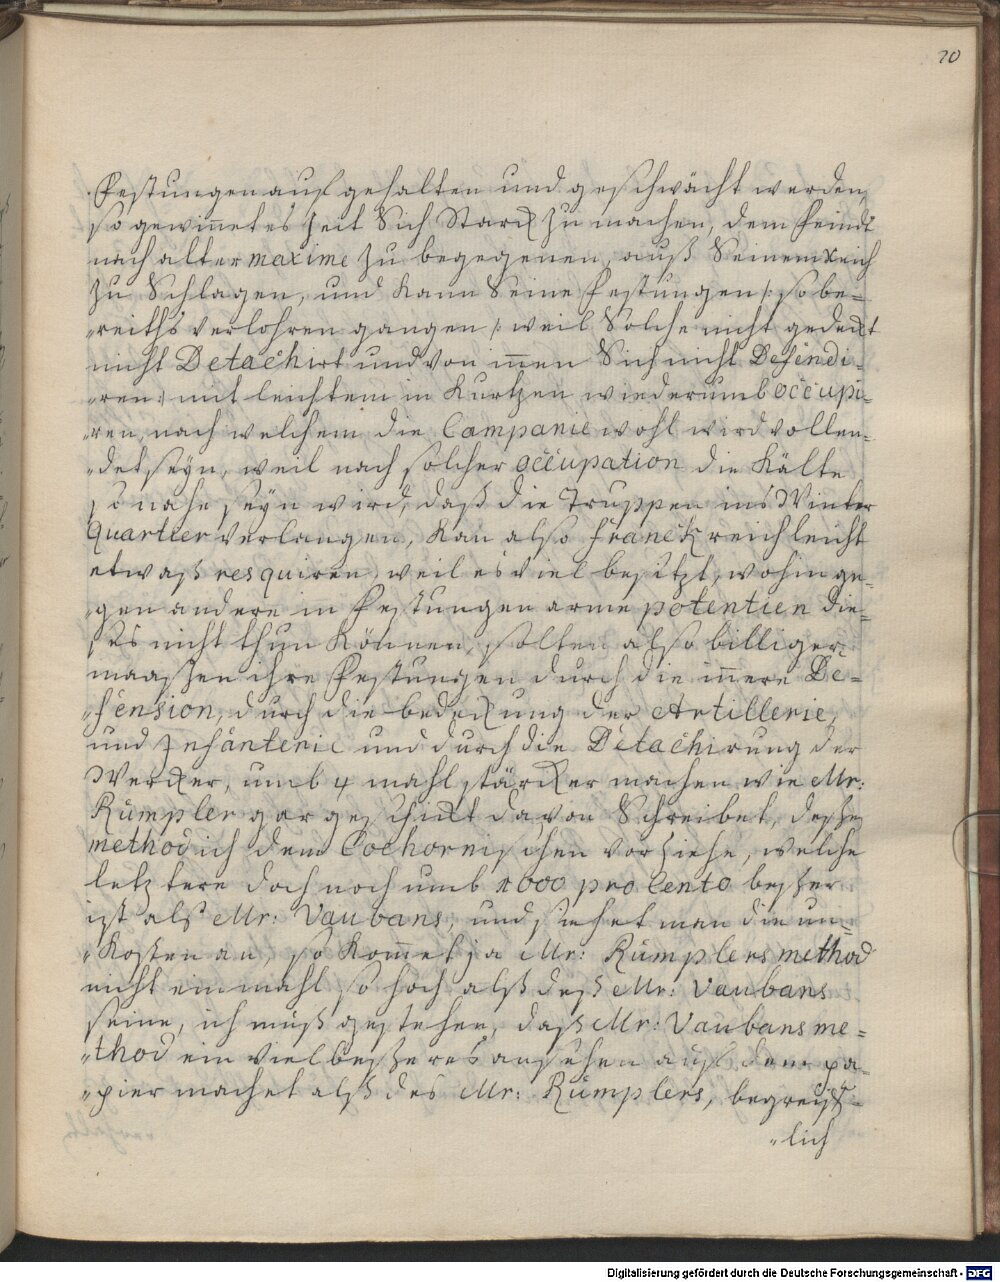 20
Festungen auf gehalten und geschwächt werden,
so gewinnet es Zeit Sich Starck zu machen, dem feindt
nach alter maxime zu begegenen, auß Seinem Reich
zu Schlagen, und kann Seine Festungen /: so be=
„reiths verlohren gangen /: weil Solche nicht gedeckt
nicht Detachirt und von innen Sich nicht Defendi=
„ren :/ mit leichtem in kurtzen wiederumb occupi=
„ren, nach welchem die Campanie wohl wird vollen=
„det seyn, weil nach solcher occupation die Kälte
so nahe seyn wird, daß die Truppen ins Winter
quartier verlangen, kan also Franckreich leicht
etwaß resquiren, weil es viel besitzt, wohin ge=
„gen andere in Festungen arme potentien die=
ses nicht thun können, solten also billiger
maaßen ihre Festungen durch die innere De=
„fension, durch die bedeckung der Artillerie,
und Infanterie und durch die Detachirung der
Wercker, umb 4 mahl stärcker machen wie Mr:
Rümpler gar geschickt davon Schreibet, deßen
method ich dem Coehornischen vorziehe, welche
letztere doch noch umb 1000 pro Cento beßer
ist alß Mr: Vaubans, und siehet man die un=
„kosten an, so kommet ja Mr: Rümplers method
nicht einmahl so hoch alß deß Mr: Vaubans
seine, ich muß gestehen, daß Mr: Vaubans me=
„thod ein viel beßeres ansehen auf dem pa=
„pier machet alß des Mr: Rümplers, begreif=
„lich
Digitalisierung gefördert durch die Deutsche Forschungsgemeinschaft - DFG